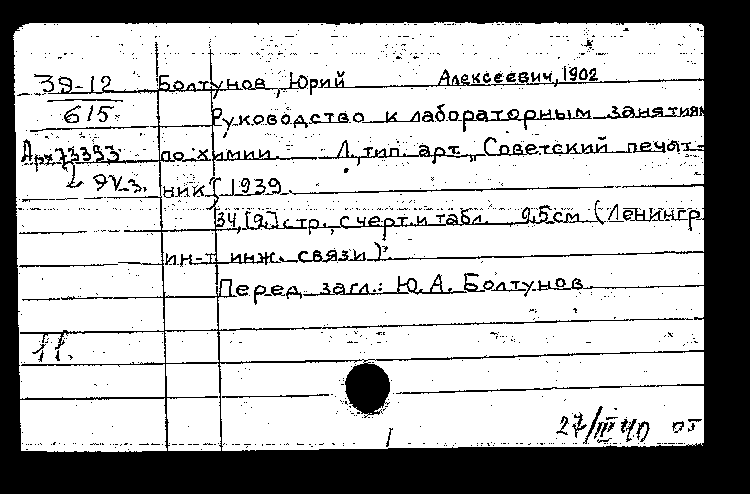 39-12 Болтунов, Юрий Алексеевич, 1902
615 Руководство к лабораторным занятиям
Арх73393 по химии. Л., тип. арт. „Советский печат-
экз. ник", 1939.
34, [2] стр., с черт. и табл. см (Ленингр.
ин-т инж. связи).
Перед загл.: Ю. А. Болтунов.
27/III 40